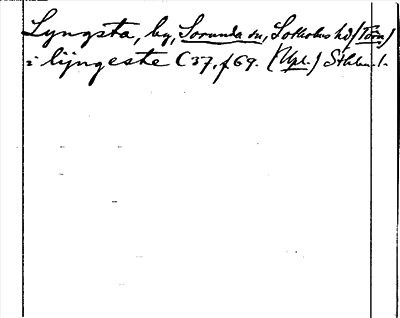 Lyngsta, by, Sorunda sn, Sotholms hd (Törn)
i lÿngeste C 37, f 69. (Upl.) Sthlm. l.